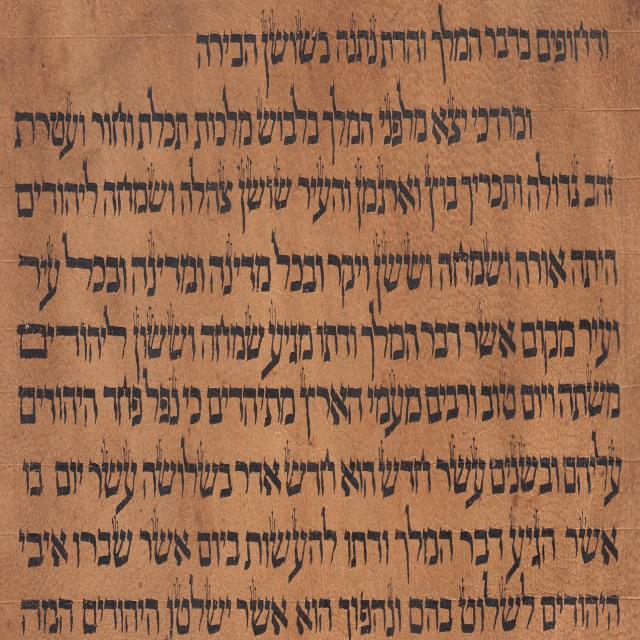 ודחופים בדבר המלך והדת נתנה בשושן הבירה
ומרדכי יצא מלפני המלך בלבוש מלכות תכלת וחור ועטרת
זהב גדולה ותכריך בוץ וארגמן והעיר שושן צהלה ושמחה ליהודים
היתה אורה ושמחה וששון ויקר ובכל מדינה ומדינה ובכל עיר
ועיר מקום אשר דבר המלך ודתו מגיע שמחה וששון ליהודים
משתה ויום טוב ורבים מעמי הארץ מתיהדים כי נפל פחד היהודים
עליהם ובשנים עשר חדש הוא חדש אדר בשלושה עשר יום בו
אשר הגיע דבר המלך ודתו להעשות ביום אשר שברו איבי
היהודים לשלוט בהם ונהפוך הוא אשר ישלטו היהודים המה